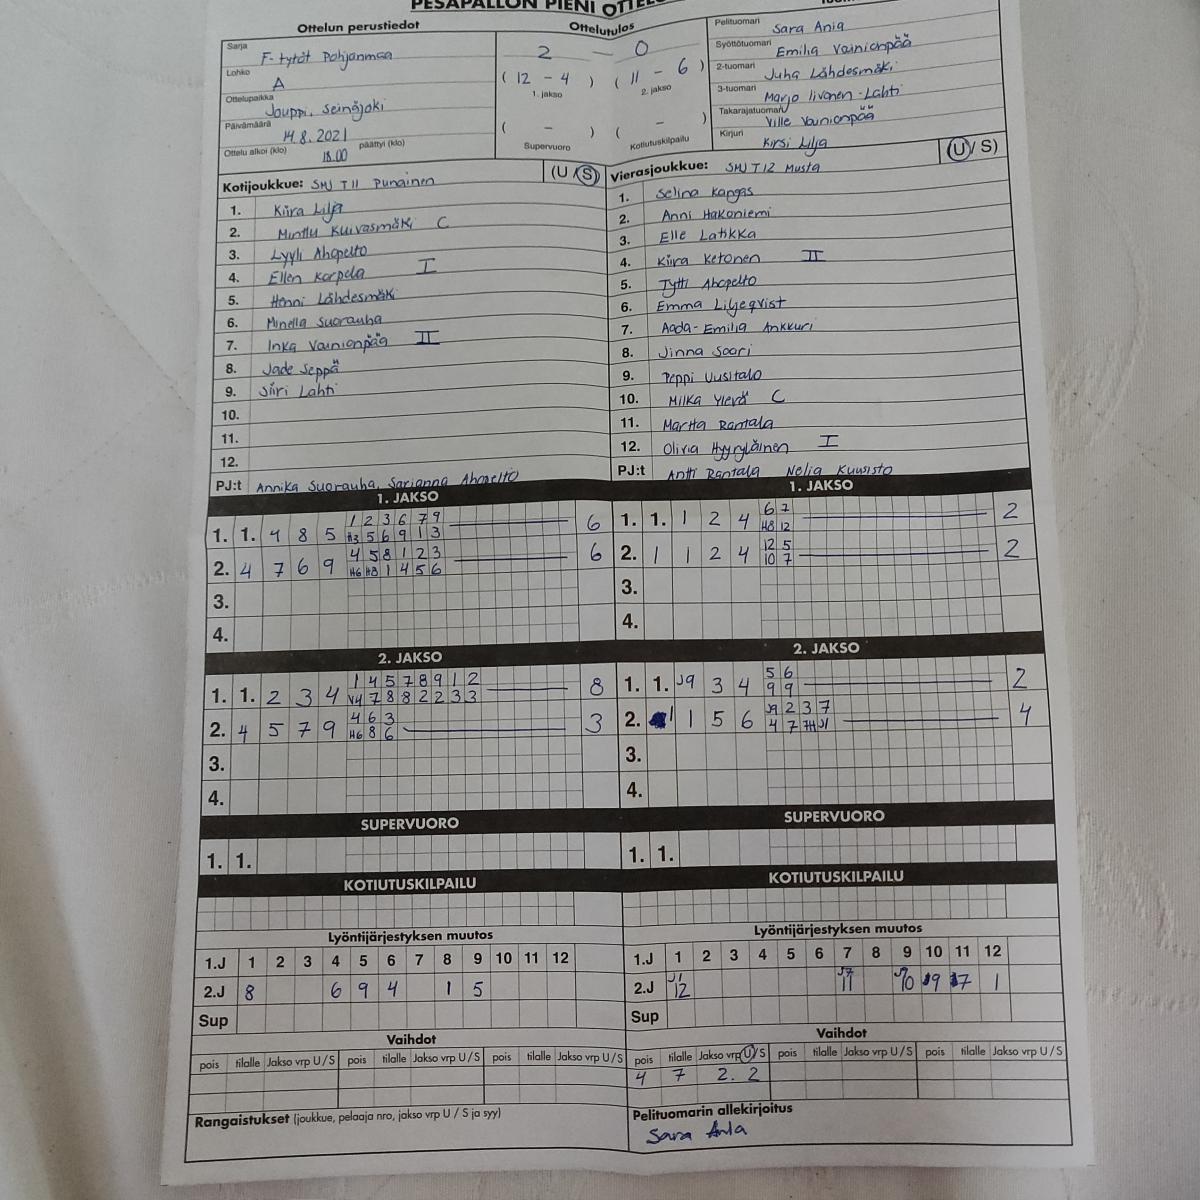 PESÄPALLON PIENI
Ottelun perustiedot
Sarja F-tytöt Pohjanmaa
Lohko A
Ottelupaikka Jouppi, Seinäjoki
Päivämäärä 14.8.2021
Ottelu alkoi (klo) 18.00 päättyi (klo)
Ottelutulos
2 — 0
( 12 - 4 ) ( 11 - 6 )
1. jakso 2. jakso
( - ) ( - )
Supervuoro Kotiutuskilpailu
Pelituomari Sara Ania
Syöttötuomari Emilia Vainionpää
2-tuomari Juha Lähdesmäki
3-tuomari Marjo Iivonen-Lahti
Takarajatuomari Ville Vainionpää
Kirjuri Kirsi Lilja
Kotijoukkue: SMJ T11 Punainen (U/S)
1. Kiira Lilja
2. Minttu Kuivasmäki C
3. Lyyli Ahopelto
4. Ellen Korpela I
5. Henni Lähdesmäki
6. Minella Suorauha
7. Inka Vainionpää II
8. Jade Seppä
9. Siiri Lahti
10.
11.
12.
PJ:t Annika Suorauha, Sarianna Ahopelto
Vierasjoukkue: SMJ T12 Musta (U/S)
1. Selina Kangas
2. Anni Hakoniemi
3. Elle Latikka
4. Kiira Ketonen II
5. Tytti Ahopelto
6. Emma Liljeqvist
7. Aada-Emilia Ankkuri
8. Jinna Soori
9. Peppi Uusitalo
10. Milka Ylevä C
11. Martta Rantala
12. Olivia Hyyryläinen I
PJ:t Antti Rantala Nelia Kuusisto
1. JAKSO
1 2 3 6 7 9
1. 1. 4 8 5 6
H3 5 6 9 1 3
4 5 8 1 2 3
2. 4 7 6 9 6
H6 H8 1 4 5 6
3.
4.
1. JAKSO
6 7
1. 1. 1 2 4 2
H8 12
12 5
2. 1 1 2 4 2
10 7
3.
4.
2. JAKSO
1 4 5 7 8 9 1 2
1. 1. 2 3 4 8
V4 7 8 8 2 2 3 3
4 6 3
2. 4 5 7 9 3
H6 8 6
3.
4.
2. JAKSO
5 6
1. 1. J9 3 4 2
9 9
J9 2 3 7
2. 1 1 5 6 4
4 7 7H J1
3.
4.
SUPERVUORO
1. 1.
SUPERVUORO
1. 1.
KOTIUTUSKILPAILU
KOTIUTUSKILPAILU
Lyöntijärjestyksen muutos
1.J 1 2 3 4 5 6 7 8 9 10 11 12
2.J 8 6 9 4 1 5
Sup
Lyöntijärjestyksen muutos
1.J 1 2 3 4 5 6 7 8 9 10 11 12
2.J 12 11 1
Sup
Vaihdot
pois tilalle Jakso vrp U/S pois tilalle Jakso vrp U/S pois tilalle Jakso vrp U/S
Vaihdot
pois tilalle Jakso vrp U/S pois tilalle Jakso vrp U/S pois tilalle Jakso vrp U/S
4 7 2. 2
Rangaistukset (joukkue, pelaaja nro, jakso vrp U / S ja syy)
Pelituomarin allekirjoitus
Sara Ania